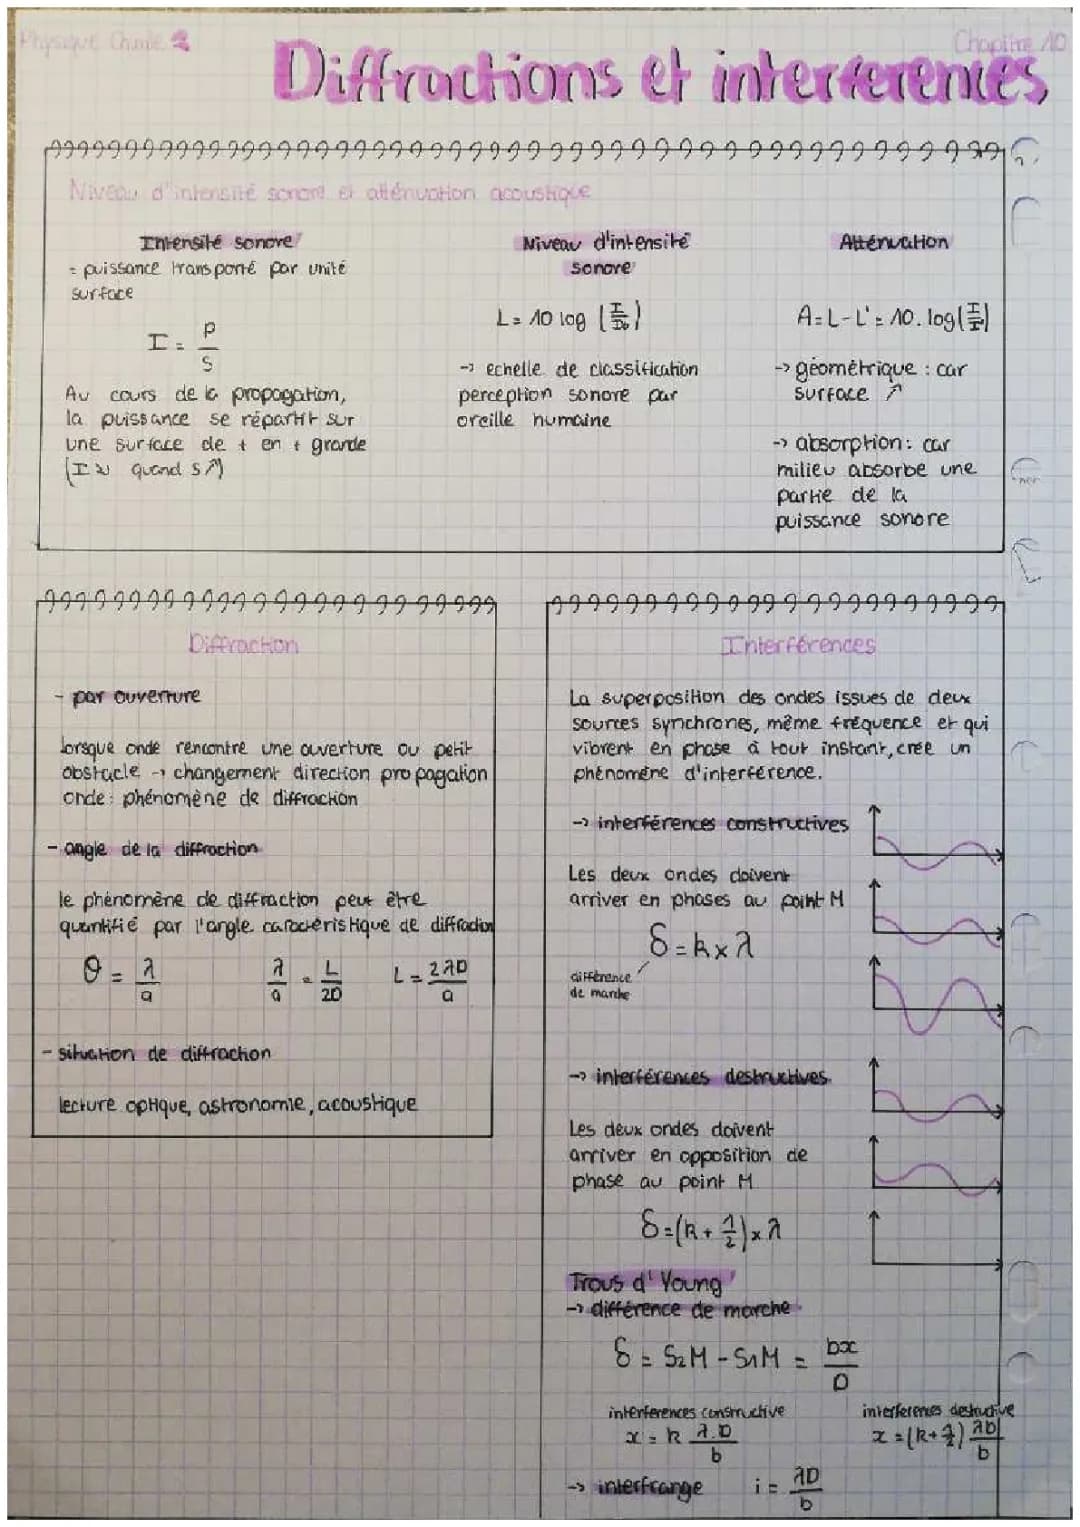 Physique Chimie
Chapitre 10
Diffractions et interferences
Niveau d'intensité sonore et atténuation acoustique
Intensité sonore
= puissance transporté par unité
surface
I = P/S
Au cours de la propagation,
la puissance se répartit sur
une surface de + en + grande
(I ↘ quand S ↗)
Niveau d'intensité
sonore
L = 10 log (I/I₀)
-> echelle de classification
perception sonore par
oreille humaine
Atténuation
A = L - L' = 10. log(I/I')
-> géométrique : car
surface ↗
-> absorption : car
milieu absorbe une
partie de la
puissance sonore
Diffraction
- par ouverture
lorsque onde rencontre une ouverture ou petit
obstacle -> changement direction propagation
onde : phénomène de diffraction
- angle de la diffraction
le phénomène de diffraction peut être
quantifié par l'angle caractéristique de diffraction
θ = λ/a λ/a = L/2D L = 2λD/a
- situation de diffraction
lecture optique, astronomie, acoustique
Interférences
La superposition des ondes issues de deux
sources synchrones, même fréquence et qui
vibrent en phase à tout instant, crée un
phénomène d'interférence.
-> interférences constructives
Les deux ondes doivent
arriver en phases au point M
δ = k x λ
différence
de marche
-> interférences destructives
Les deux ondes doivent
arriver en opposition de
phase au point M
δ = (k + 1/2) x λ
Trous d'Young
-> différence de marche
δ = S₂M - S₁M = bx/D
interférences constructive
x = k λ.D/b
interferences destructive
x = (k + 1/2) λD/b
-> interfrange i = λD/b